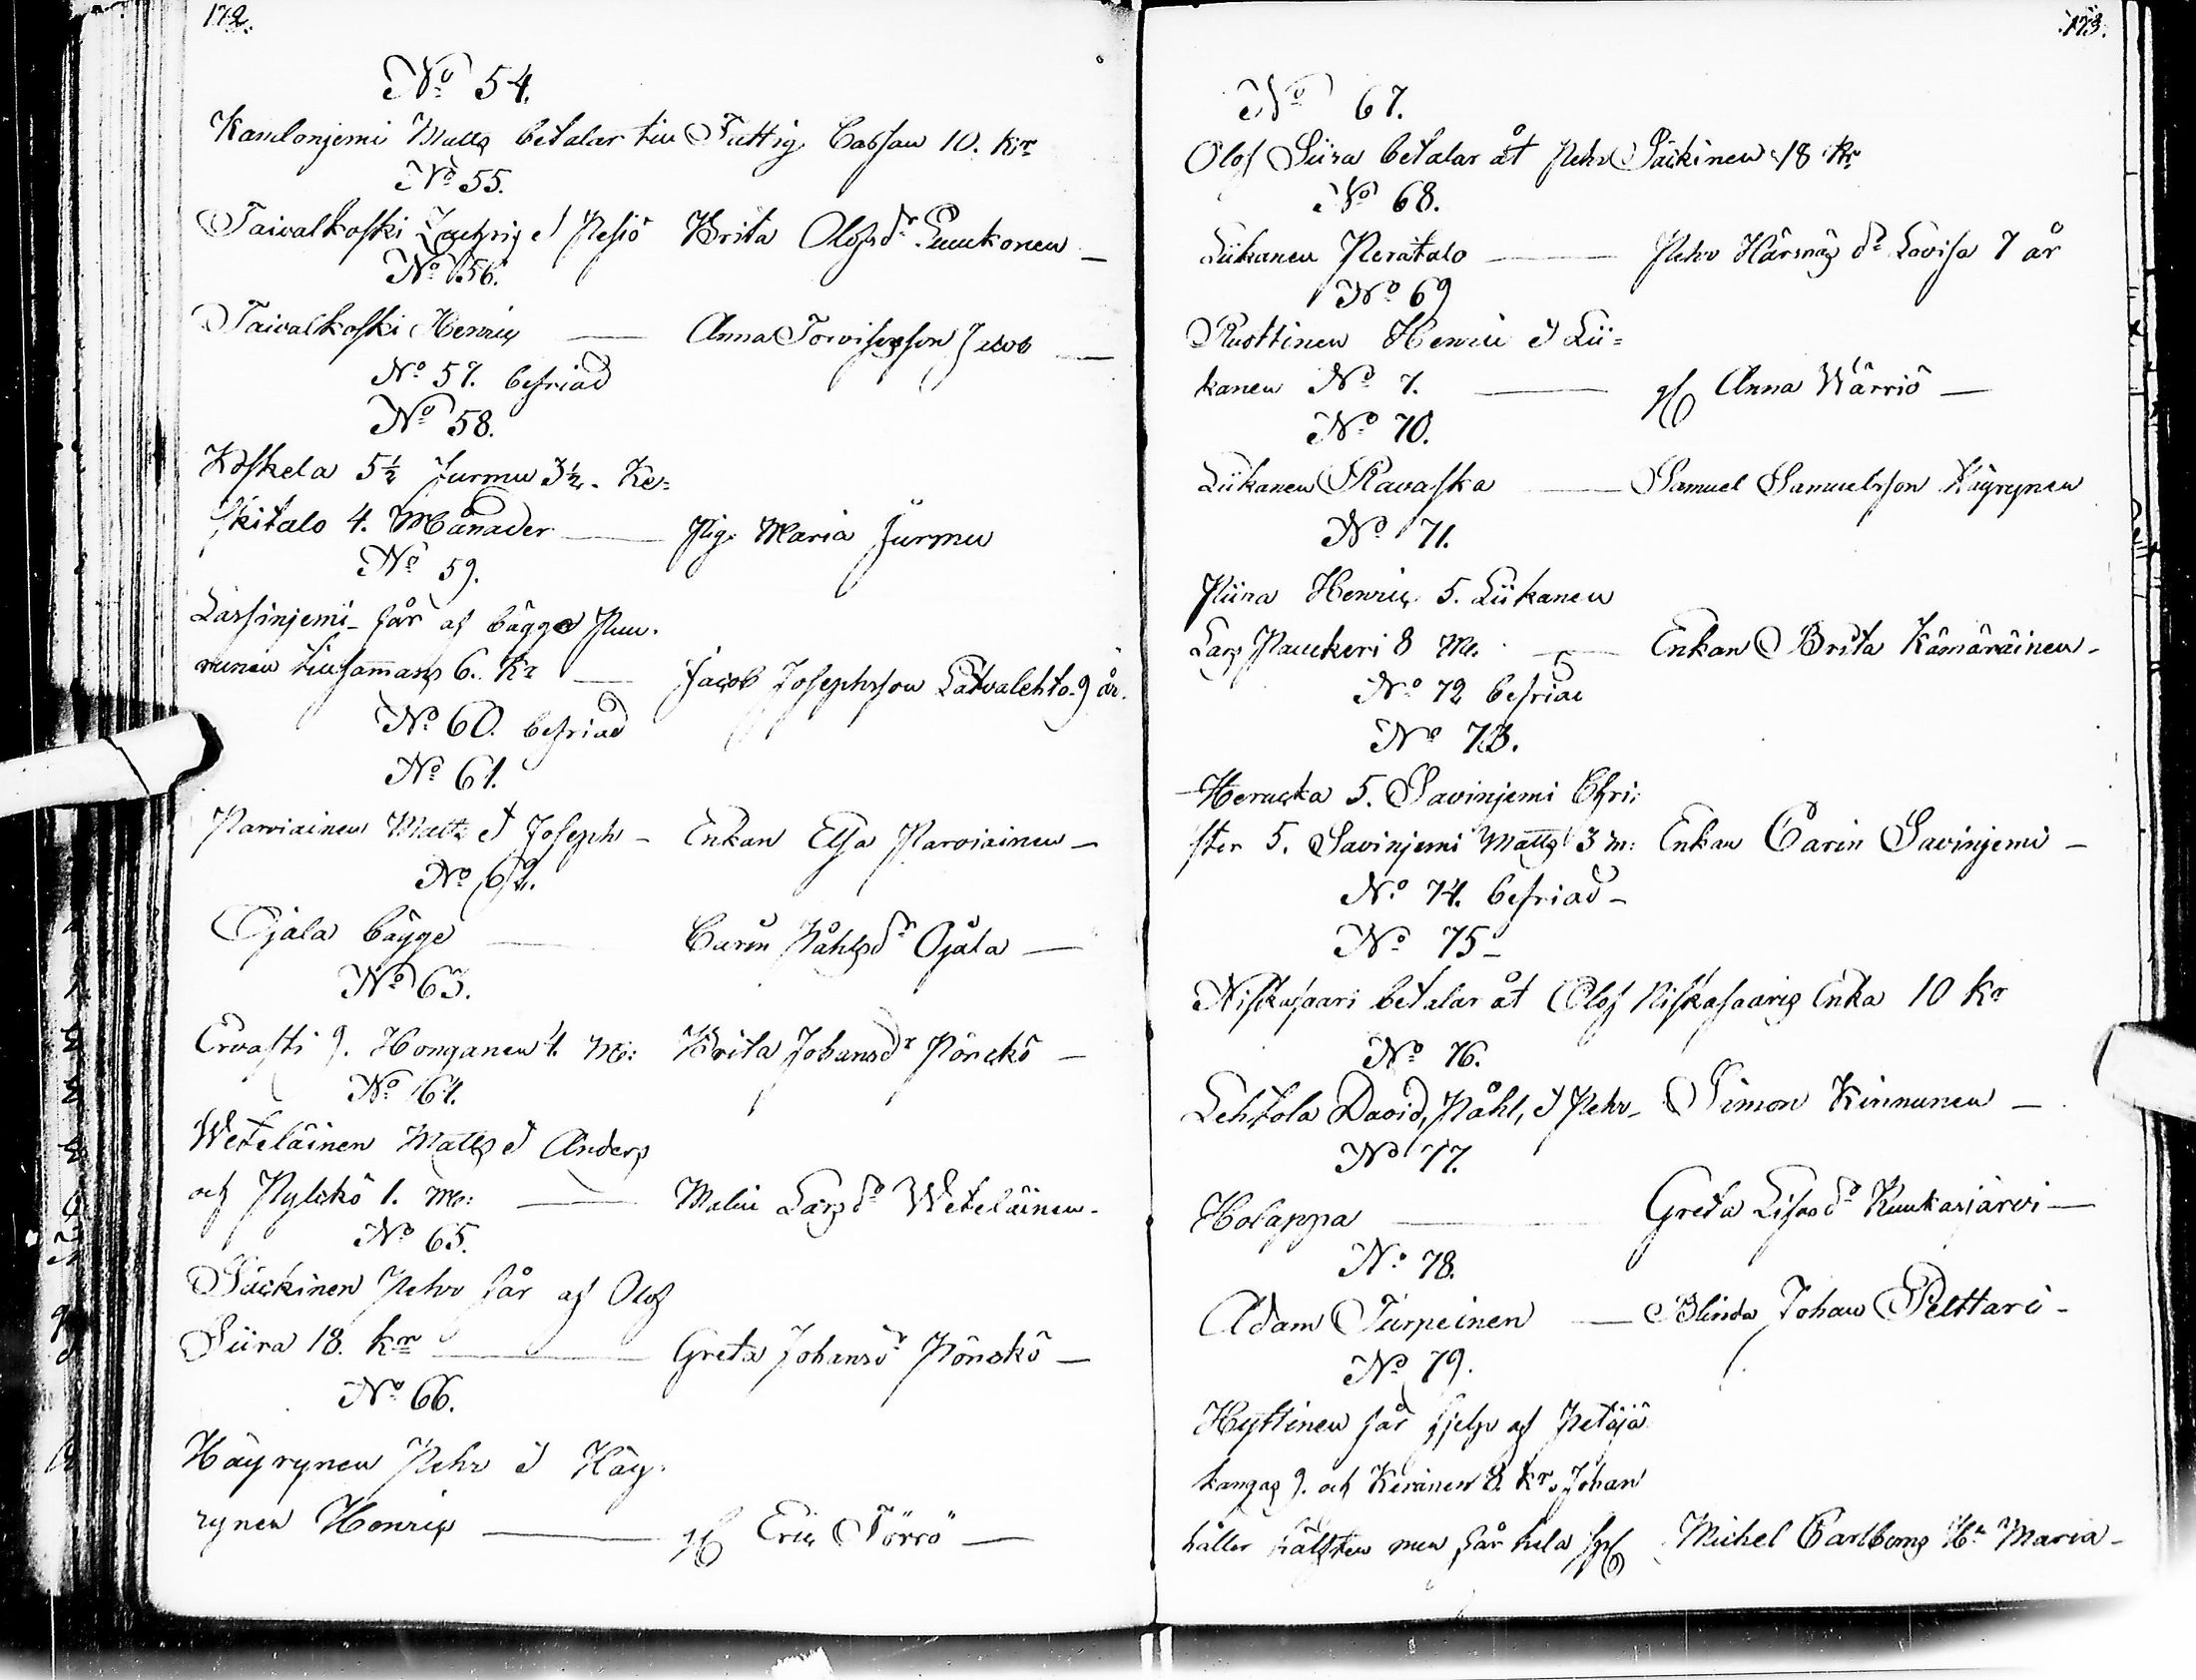 172.
No 54.
Kamlonjemi Matts betalar till Fattig Cassan 10. kr
No 55.
Taivalkoski et Pesiö Brita Olofsdr Luukonen —
No 56.
Taivalkoski Henric — Anna Jacob —
No 57. befriad
No 58.
Koskela 5½ Jurmu 3½. Ke=
skitalo 4. Månader — Pig. Maria Jurmu
No 59.
Lassinjemi får af bägge Puu.
runen tillsammans 6. Kr — Jacob Josephsson Latvalehto. 9 år.
No 60. befriad
No 61.
Parviainen Matts et Joseph — Enkan Elsa Parviainen —
No 62.
Ojala bägge — Carin Påhlsdr Ojala —
No 63.
Ervasti 9. Honganen 4. M: Brita Johansdr Pönckö —
No 64.
Weteläinen Matts et Anders
och Pylckö 1. M: — Malin Larsdr Weteläinen —
No 65.
Säckinen Pehr får af Olof
Siira 18. kr — Greta Johansdr Pönckö —
No 66.
Häyrynen Pehr et Häy.
rynen Henric — Eric Törrö —
173.
No 67.
Olof Siira betalar åt Pehr Säckinen 18 kr
No 68.
Liikanen Perätalo — Pehr Härmäs dr Lovisa 7 år
No 69
Ruottinen Henric et Lii=
kanen No 7. — Anna Wärriö —
No 70.
Liikanen Ravaska — Samuel Samuelsson Häyrynen
No 71.
Piira Henric 5. Liikanen
Lars Pauckeri 8 M. — Enkan Brita Kämäräinen —
No 72 befriad
No 73.
Herucka 5. Savinjemi Chri:
ster 5. Savinjemi Matts 3 m: Enkan Carin Savinjemi —
No 74. befriad —
No 75 —
Niskasaari betalar åt Olof Niskasaaris Enka 10 kr
No 76.
Lehtola David, Påhl, et Pehr — Simon Kinnunen —
No 77.
Holappa — Greta dr Kuukasjärvi —
No 78.
Adam Turpeinen — Blinda Johan Pelttari —
No 79.
Hyttinen får hjelp af Petäjä
kangas 9. och Keränen 8. kr. Johan
håller hälften men får hela Michel Carlbergs Ha Maria —